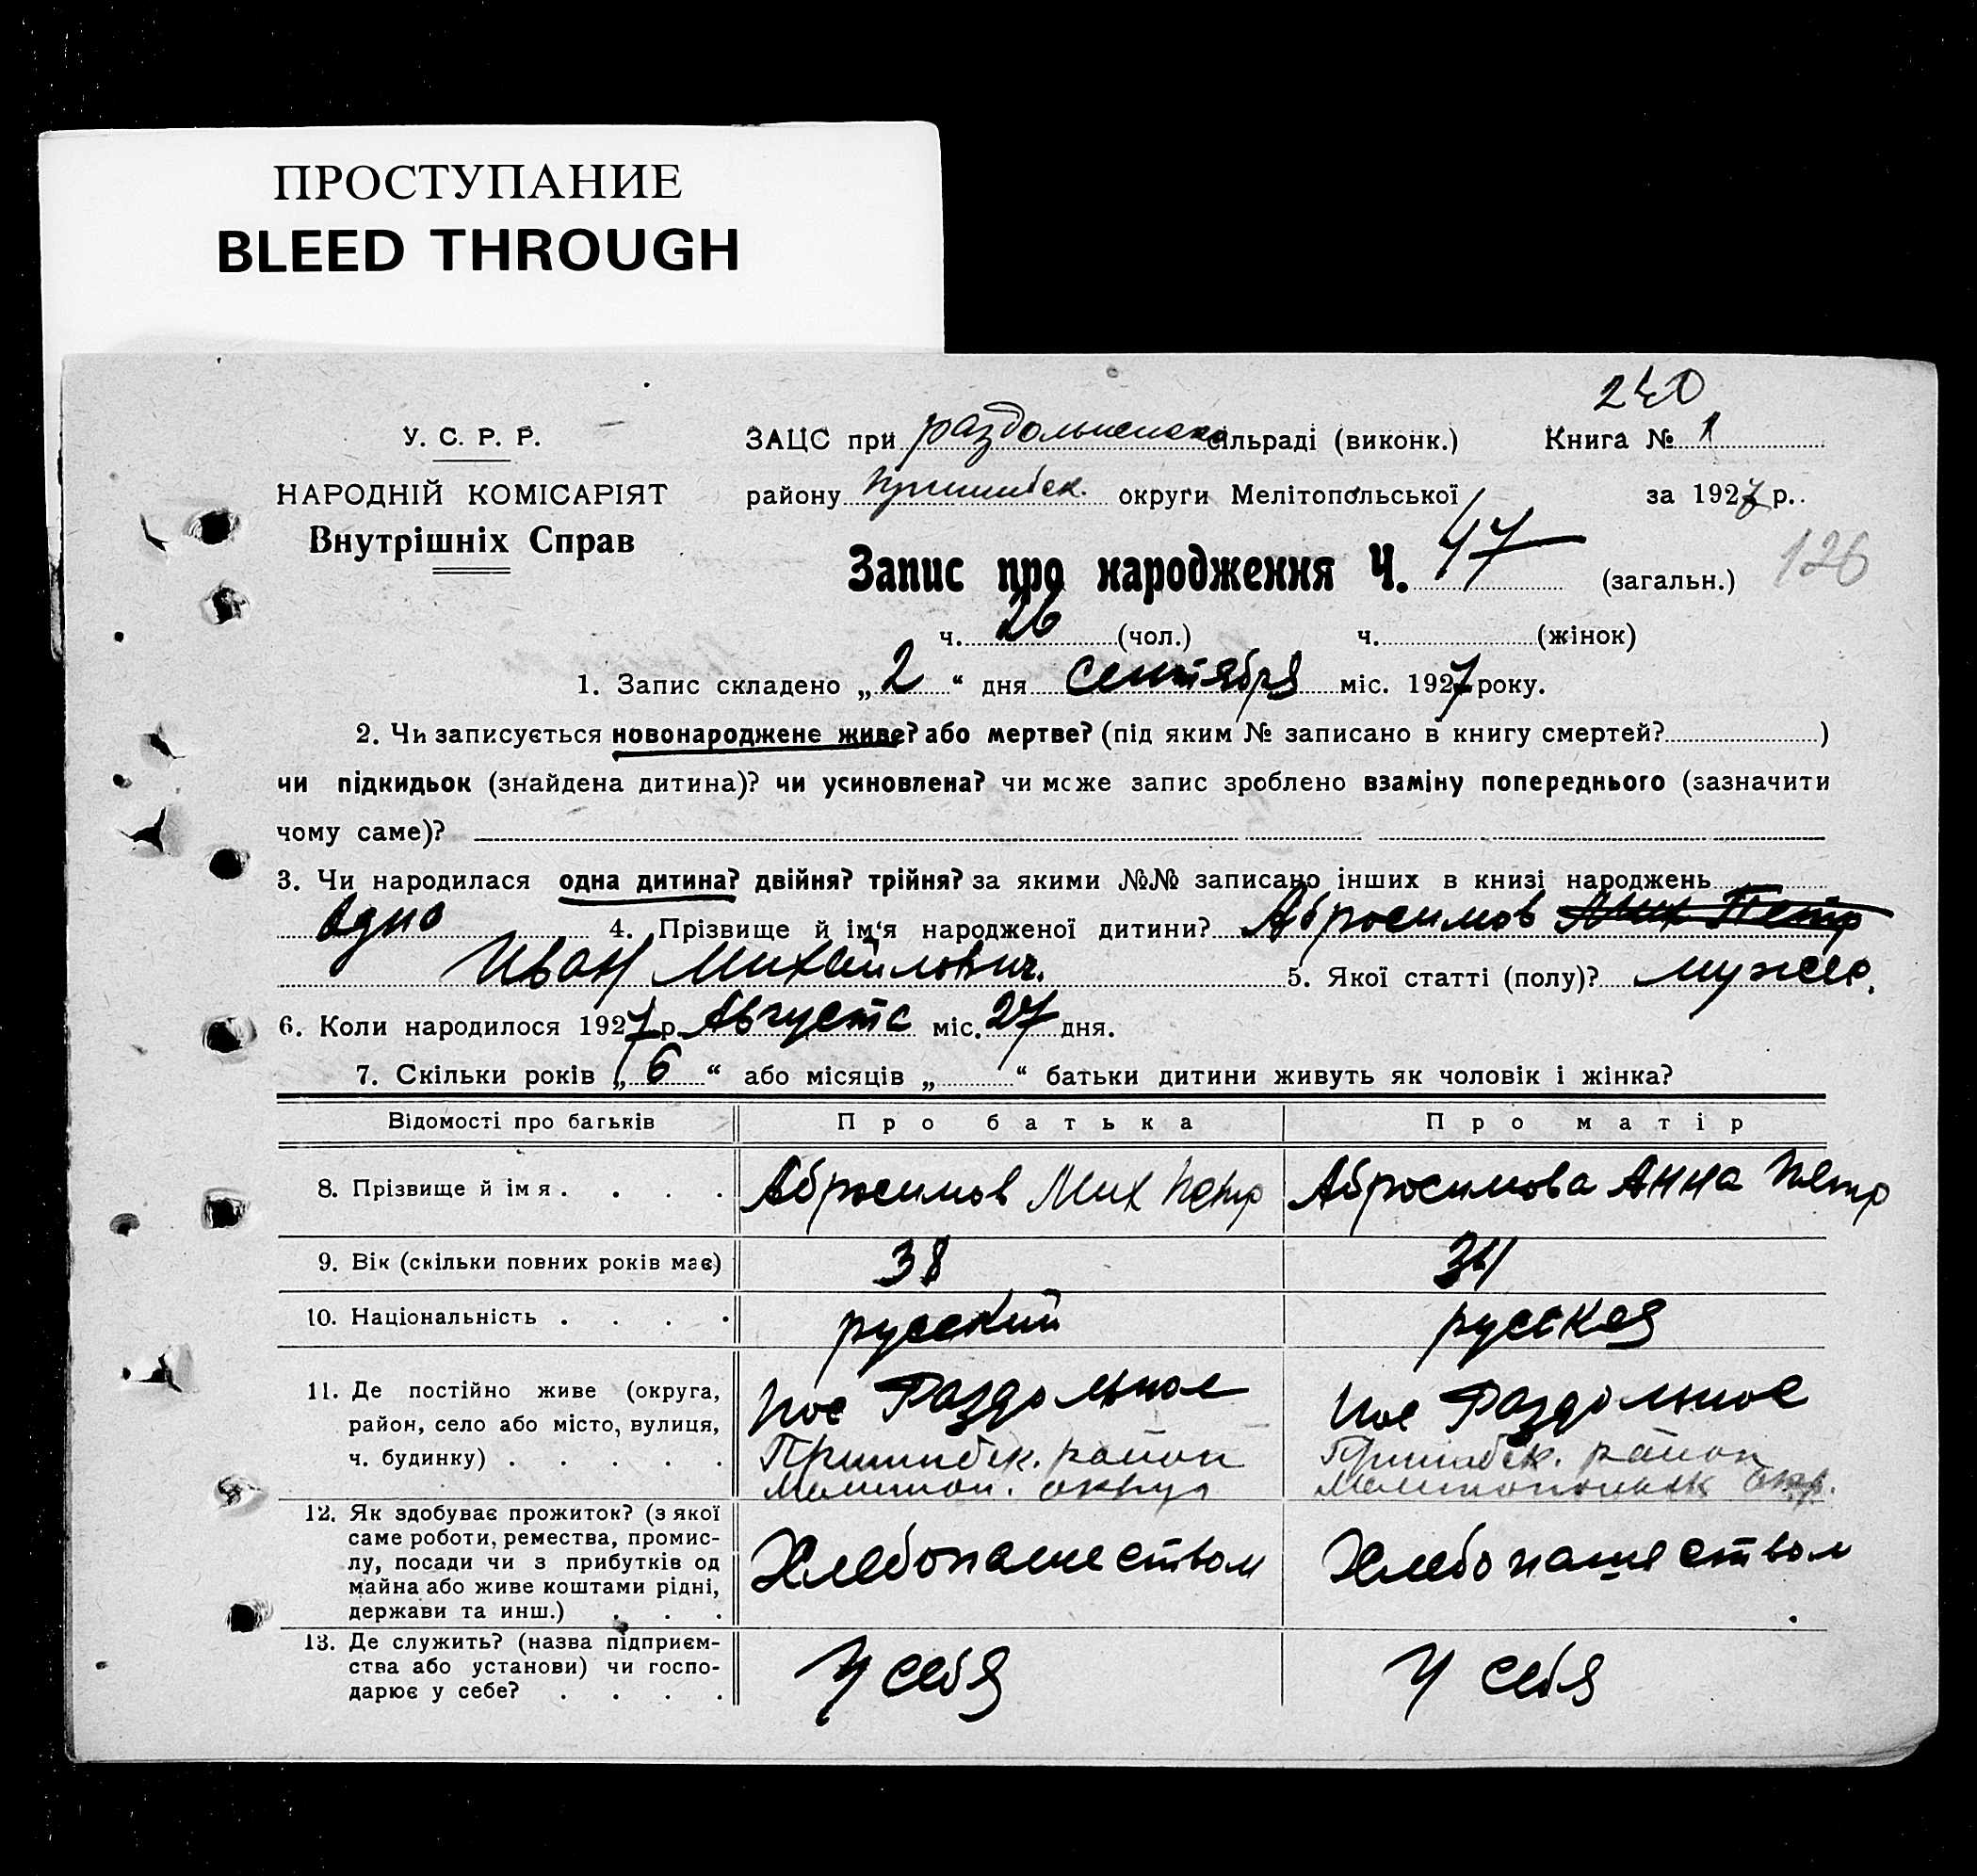 ПРОСТУПАНИЕ
BLEED THROUGH
240
У. С. Р. Р.
ЗАЦС при раздольненско сільраді (виконк.) Книга № 1
НАРОДНІЙ КОМІСАРІЯТ
району Пришибск. округи Мелітопольської за 1927 р.
Внутрішніх Справ
Запис про народження Ч. 47 (загальн.) 126
ч. 26 (чол.) ч. (жінок)
1. Запис складено „ 2 “ дня Сентября міс. 1927 року.
2. Чи записується новонароджене живе? або мертве? (під яким № записано в книгу смертей? )
чи підкидьок (знайдена дитина)? чи усиновлена? чи може запис зроблено взаміну попереднього (зазначити
чому саме)?
3. Чи народилася одна дитина? двійня? трійня? за якими №№ записано інших в книзі народжень
одно 4. Прізвище й ім‘я народженої дитини? Абросимов Мих Петр
Иван Михайлович. 5. Якої статті (полу)? мужск.
6. Коли народилося 1927 р. Августа міс. 27 дня.
7. Скільки років „ 6 “ або місяців „ “ батьки дитини живуть як чоловік і жінка?
Відомості про батьків Про батька Про матір
8. Прізвище й імя . . . . Абросимов Мих Петр Абросимова Анна Петр
9. Вік (скільки повних років має) 38 34
10. Національність . . . . русский русская
11. Де постійно живе (округа, район, село або місто, вулиця, ч. будинку) . . . . .
пос Раздольное
Пришибск. район
Мелитоп. округа
пос Раздольное
Пришибск. район
Мелитопольск окр.
12. Як здобуває прожиток? (з якої
саме роботи, ремества, промис-
лу, посади чи з прибутків од
майна або живе коштами рідні,
держави та инш.) . . .
Хлебопашеством Хлебопашеством
13. Де служить? (назва підприєм-
ства або установи) чи госпо-
дарює у себе? . . . .
У себя У себя